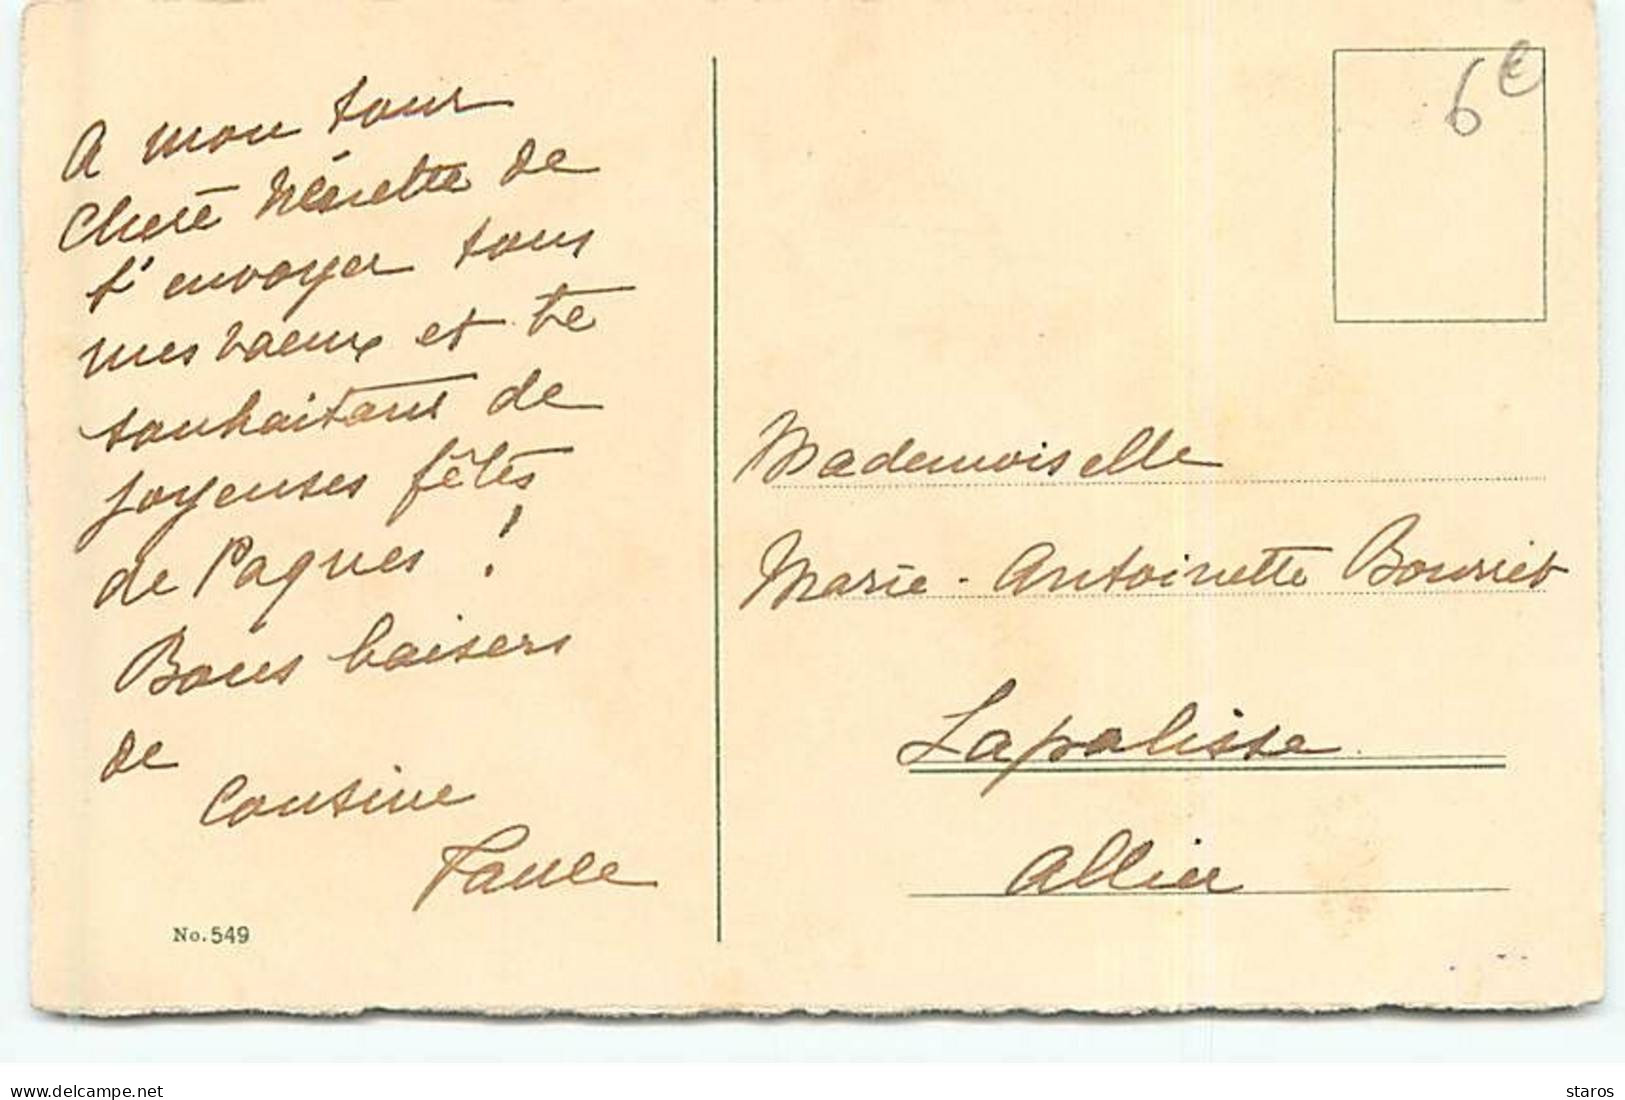 A mon tour
Chère Nénette de
t'envoyer tous
mes vaeux et te
souhaitant de
joyeuses fêtes
de Paques !
Bons baisers
de
Cousine
Paule
No. 549
6€
Mademoiselle
Marie-Antoinette Bourriet
Lapalisse
Allier
www.delcampe.net
staros